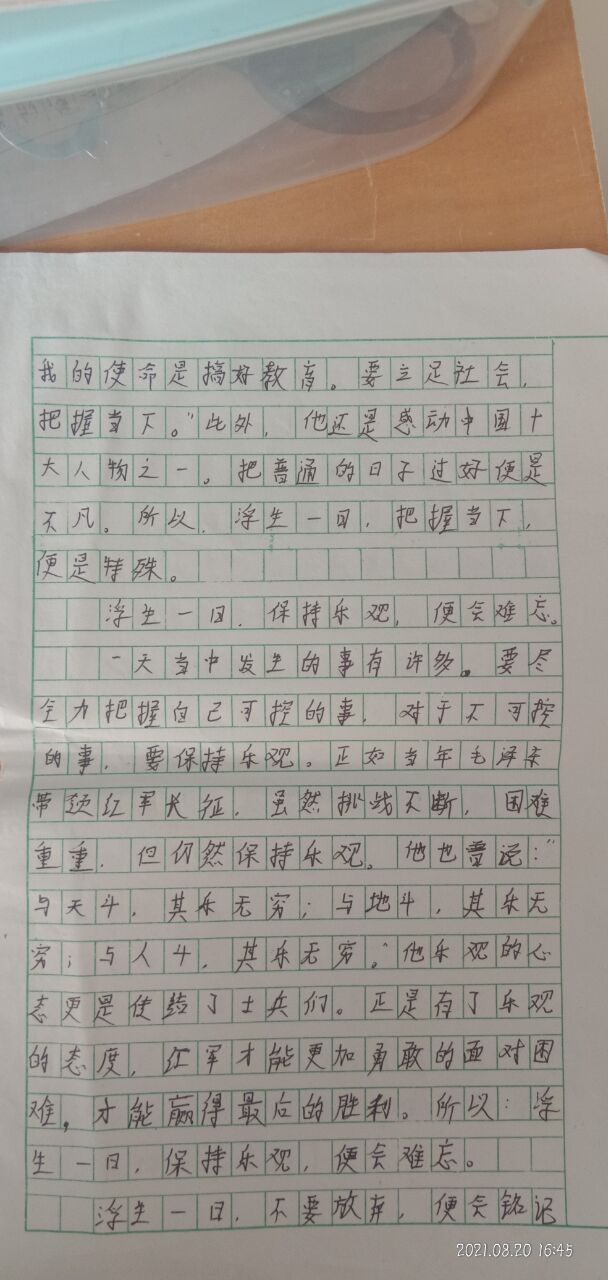 我的使命是搞好教育。要立足社会，
把握当下。"此外，他还是感动中国十
大人物之一。把普通的日子过好便是
不凡。所以，浮生一日，把握当下，
便是特殊。
浮生一日，保持乐观，便会难忘。
一天当中发生的事有许多。要尽
全力把握自己可控的事，对于不可控
的事，要保持乐观。正如当年毛泽东
带领红军长征，虽然挑战不断，困难
重重，但仍然保持乐观。他也曾说："
与天斗，其乐无穷；与地斗，其乐无
穷；与人斗，其乐无穷。"他乐观的心
态更是传给了士兵们。正是有了乐观
的态度，红军才能更加勇敢的面对困
难，才能赢得最后的胜利。所以：浮
生一日，保持乐观，便会难忘。
浮生一日，不要放弃，便会铭记
2021.08.20 16:45